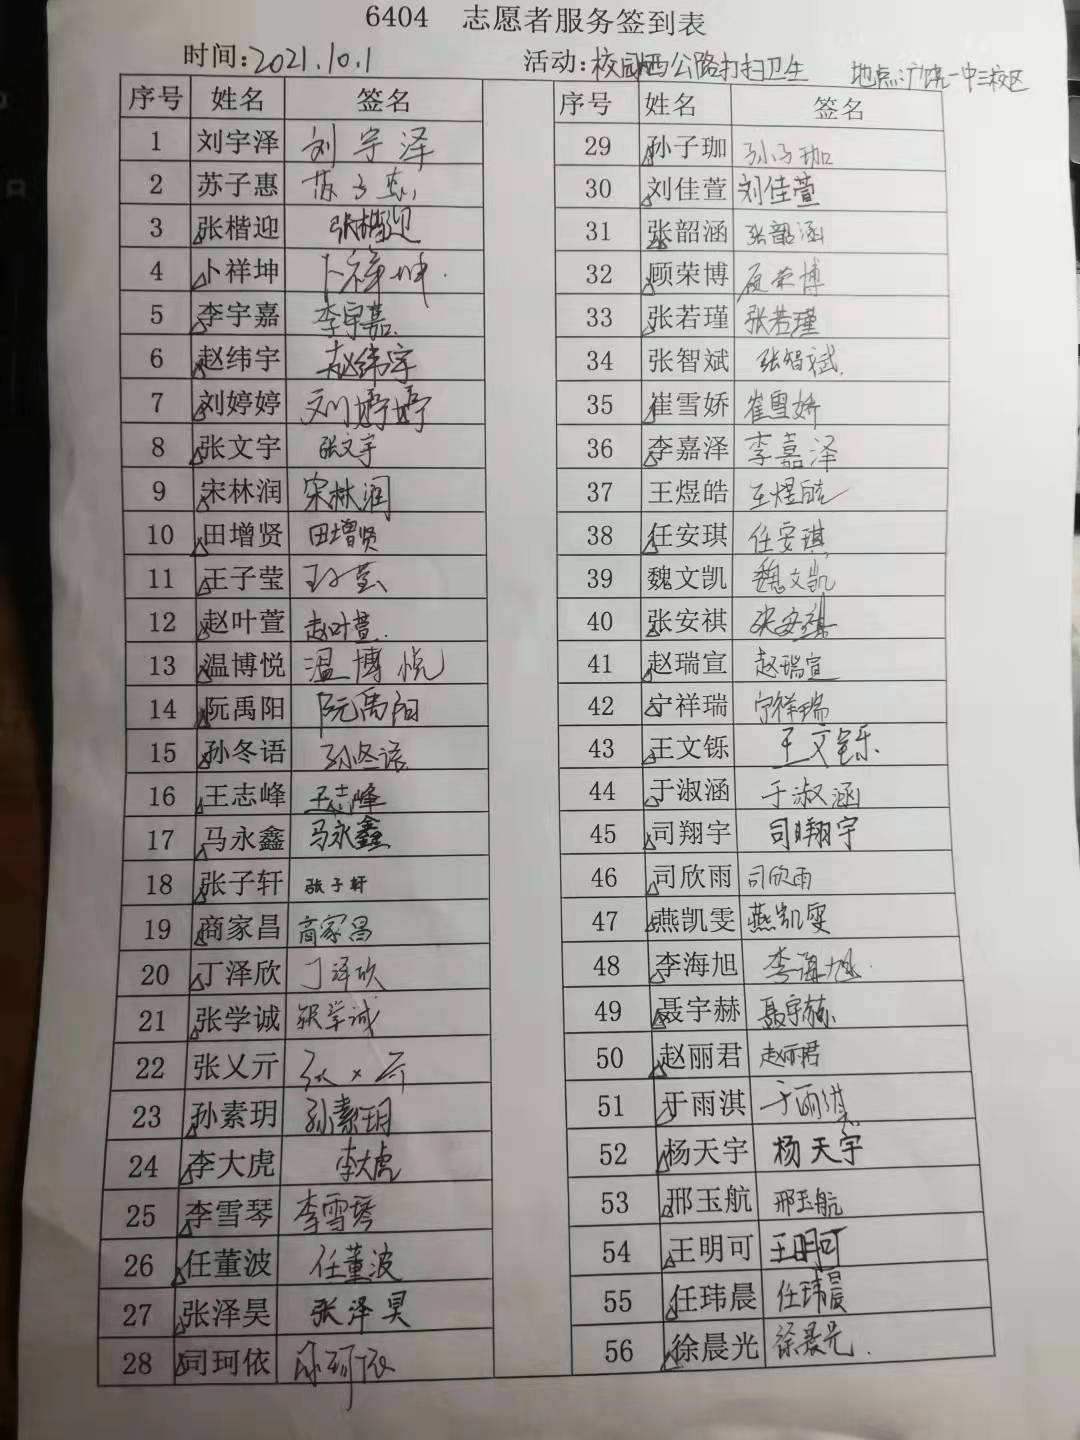 6404 志愿者服务签到表
时间:2021.10.1 活动:校园西公路打扫卫生 地点:广饶一中三校区
序号 姓名 签名 序号 姓名 签名
1 刘宇泽 刘宇泽 29 孙子珈 孙子珈
2 苏子惠 苏子惠 30 刘佳萱 刘佳萱
3 张楷迎 张楷迎 31 张韶涵 张韶涵
4 卜祥坤 卜祥坤. 32 顾荣博 顾荣博
5 李宇嘉 李宇嘉. 33 张若瑾 张若瑾
6 赵纬宇 赵纬宇 34 张智斌 张智斌.
7 刘婷婷 刘婷婷 35 崔雪娇 崔雪娇
8 张文宇 张文宇 36 李嘉泽 李嘉泽
9 宋林润 宋林润 37 王煜皓 王煜皓
10 田增贤 田增贤 38 任安琪 任安琪
11 王子莹 王子莹 39 魏文凯 魏文凯
12 赵叶萱 赵叶萱. 40 张安祺 张安祺
13 温博悦 温博悦 41 赵瑞宣 赵瑞宣
14 阮禹阳 阮禹阳 42 宁祥瑞 宁祥瑞
15 孙冬语 孙冬语 43 王文铄 王文铄
16 王志峰 王志峰 44 于淑涵 于淑涵
17 马永鑫 马永鑫 45 司翔宇 司翔宇
18 张子轩 张子轩 46 司欣雨 司欣雨
19 商家昌 商家昌 47 燕凯雯 燕凯雯
20 丁泽欣 丁泽欣 48 李海旭 李海旭.
21 张学诚 张学诚 49 聂宇赫 聂宇赫
22 张乂亓 张乂亓 50 赵丽君 赵丽君
23 孙素玥 孙素玥 51 于雨淇 于雨淇
24 李大虎 李大虎 52 杨天宇 杨天宇
25 李雪琴 李雪琴 53 邢玉航 邢玉航
26 任董波 任董波 54 王明可 王明可
27 张泽昊 张泽昊 55 任玮晨 任玮晨
28 司珂依 司珂依 56 徐晨光 徐晨光.